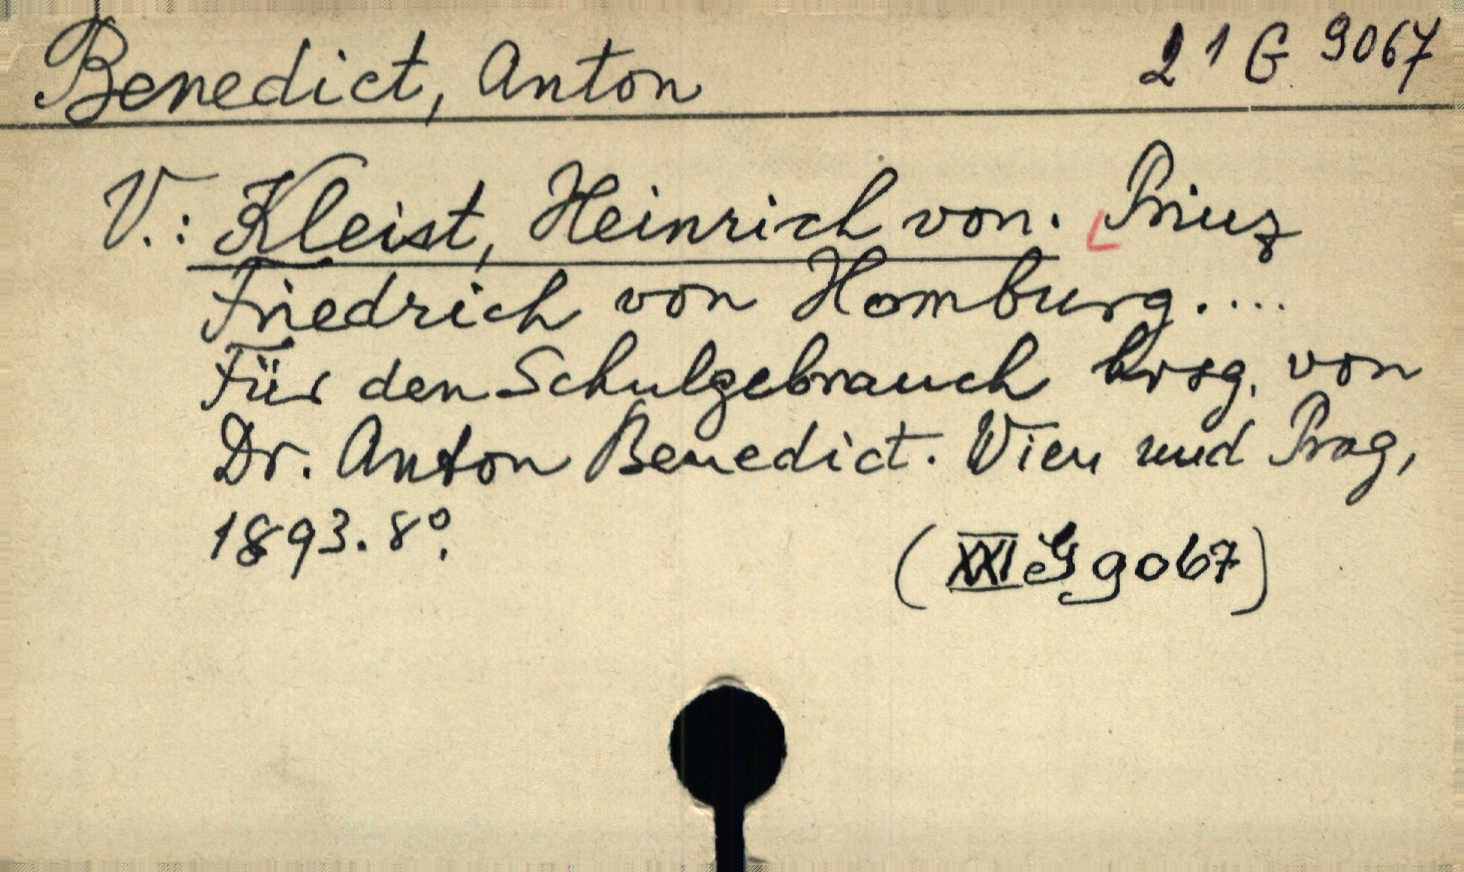 Benedict, Anton 21 G 9067
V.: Kleist, Heinrich von. Prinz
Friedrich von Homburg....
Für den Schulgebrauch hrsg. von
Dr. Anton Benedict. Wien und Prag,
1893. 8°.
(XXI G 9067)